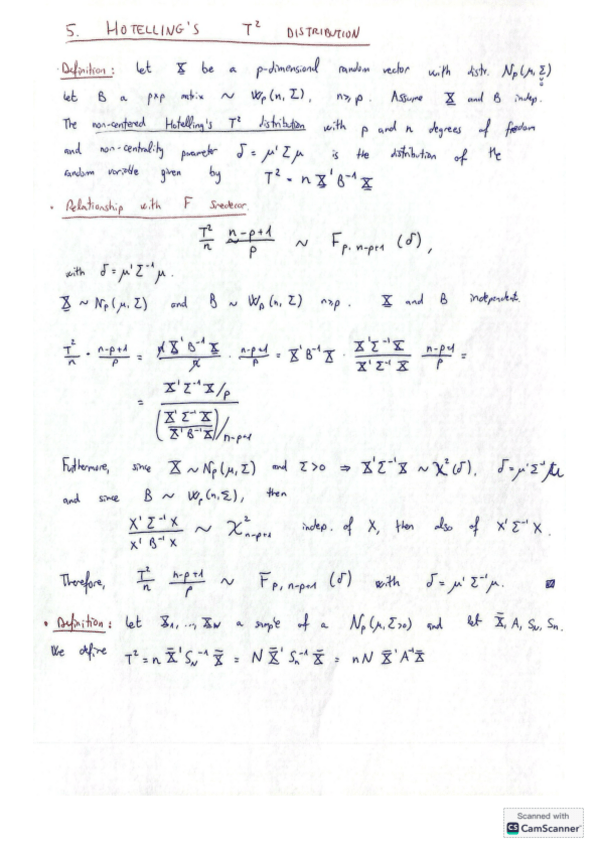 5. HOTELLING'S T² DISTRIBUTION
· Definition: Let X be a p-dimensional random vector with distr. Np(μ, Σ)
Let B a p×p matrix ~ Wp(n, Σ), n≥p. Assume X and B indep.
The non-centered Hotelling's T² distribution with p and n degrees of freedom
and non-centrality parameter δ = μ'Σμ is the distribution of the
random variable given by T² = n X'B⁻¹X
· Relationship with F Snedecor.
T²/n · (n-p+1)/p ~ F p, n-p+1 (δ),
with δ = μ'Σ⁻¹μ.
X ~ Np(μ, Σ) and B ~ Wp(n, Σ) n≥p. X and B independent.
T²/n · (n-p+1)/p = (n X'B⁻¹X)/n · (n-p+1)/p = X'B⁻¹X · (X'Σ⁻¹X)/(X'Σ⁻¹X) (n-p+1)/p =
= (X'Σ⁻¹X/p) / ((X'Σ⁻¹X / X'B⁻¹X)/n-p+1)
Futhermore, since X ~ Np(μ, Σ) and Σ>0 ⇒ X'Σ⁻¹X ~ χ²(δ), δ = μ'Σ⁻¹μ
and since B ~ Wp(n, Σ), then
(X'Σ⁻¹X)/(X'B⁻¹X) ~ χ²n-p+1 indep. of X, then also of X'Σ⁻¹X.
Therefore, T²/n (n-p+1)/p ~ F p, n-p+1 (δ) with δ = μ'Σ⁻¹μ.
· Definition: Let X₁, ..., X_N a sample of a Np(μ, Σ>0) and let X̄, A, S_N, S_n.
We define T² = n X̄'S_N⁻¹X̄ = N X̄'S_n⁻¹X̄ = nN X̄'A⁻¹X̄
Scanned with
CS CamScanner